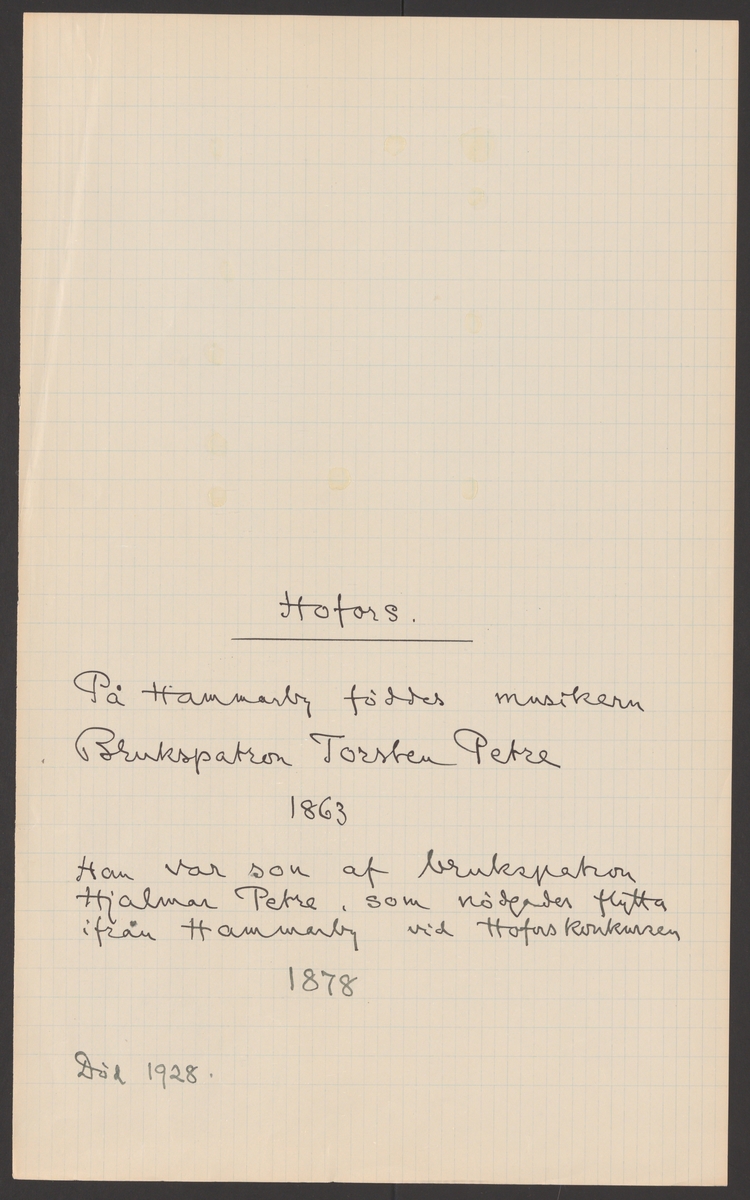 Hofors.
På Hammarby föddes musikern
Brukspatron Torsten Petre
1863
Han var son af brukspatron
Hjalmar Petre, som nödgades flytta
ifrån Hammarby vid Hoforskonkursen
1878
Död 1928.